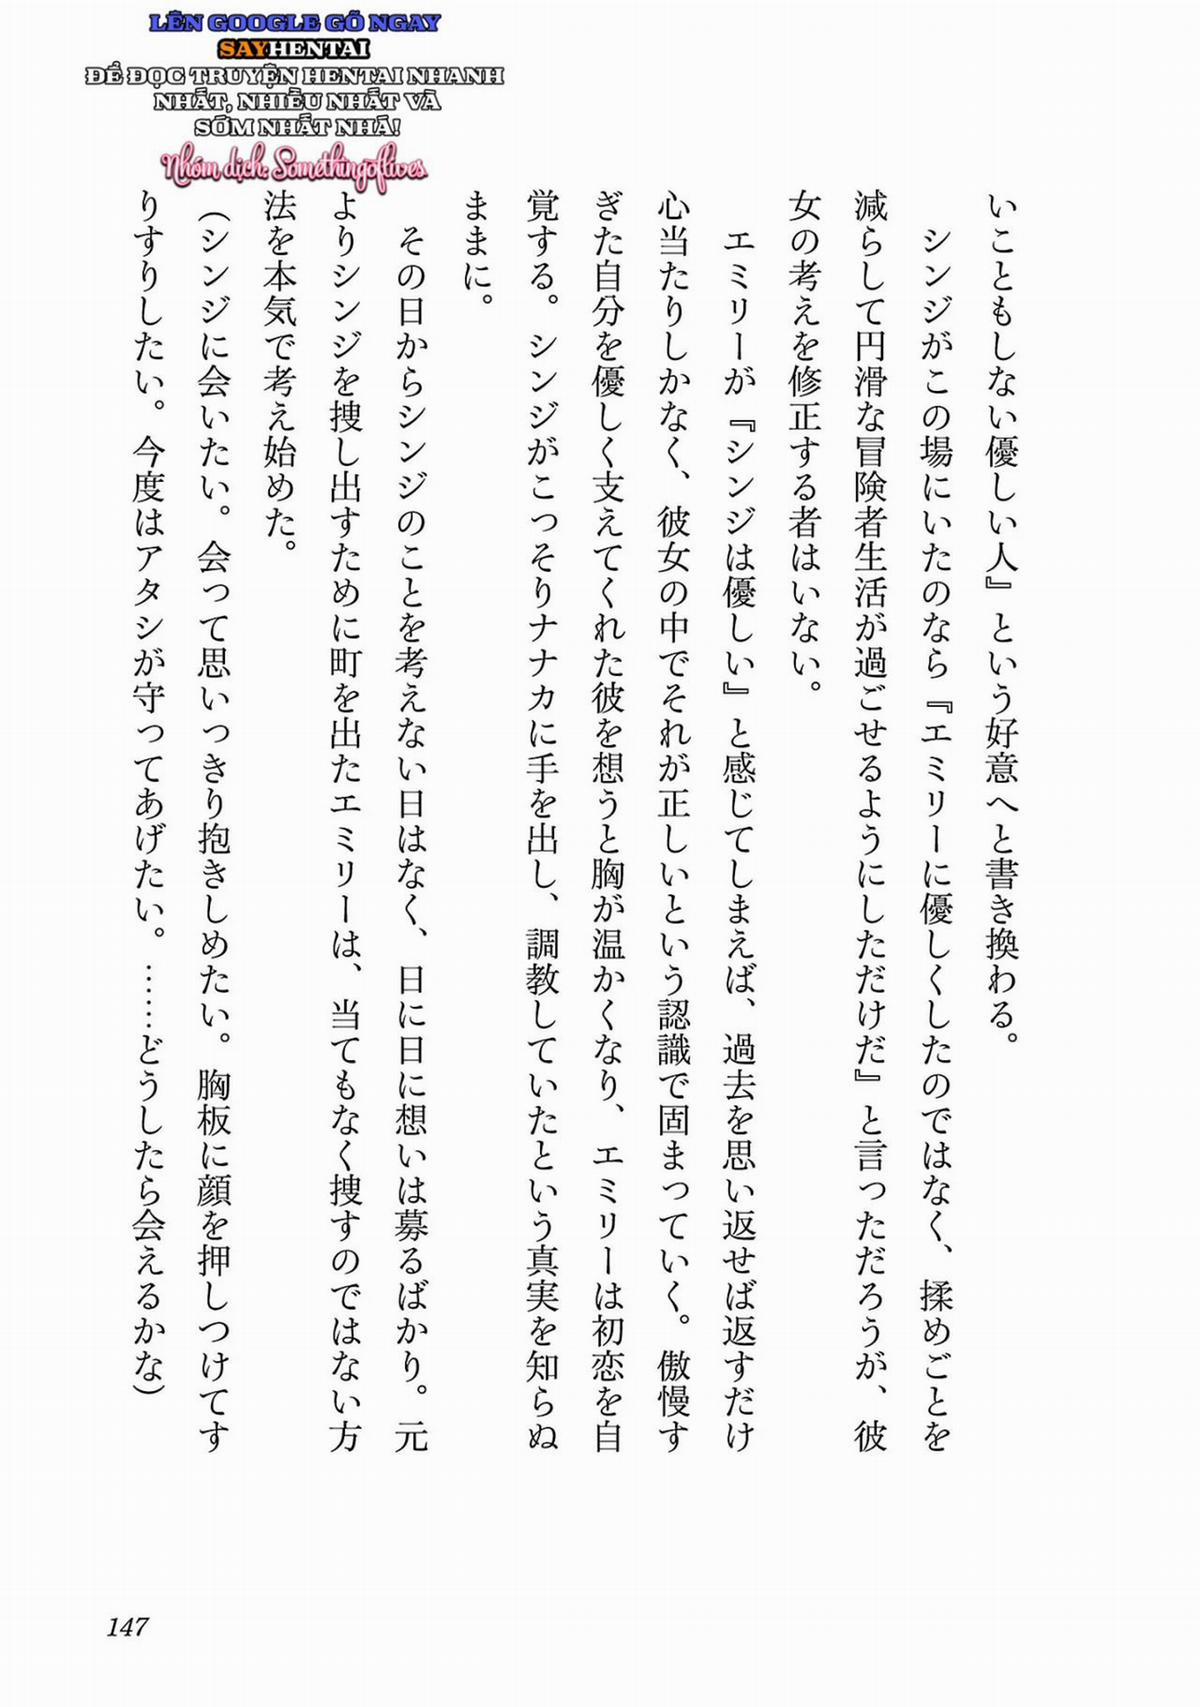 LÊN GOOGLE GÕ NGAY
SAYHENTAI
ĐỂ ĐỌC TRUYỆN HENTAI NHANH
NHẤT, NHIỀU NHẤT VÀ
SỚM NHẤT NHÁ!
Nhóm dịch: Somethingoflives
いこともしない優しい人』という好意へと書き換わる。
シンジがこの場にいたのなら『エミリーに優しくしたのではなく、揉めごとを
減らして円滑な冒険者生活が過ごせるようにしただけだ』と言っただろうが、彼
女の考えを修正する者はいない。
エミリーが『シンジは優しい』と感じてしまえば、過去を思い返せば返すだけ
心当たりしかなく、彼女の中でそれが正しいという認識で固まっていく。傲慢す
ぎた自分を優しく支えてくれた彼を想うと胸が温かくなり、エミリーは初恋を自
覚する。シンジがこっそりナナカに手を出し、調教していたという真実を知らぬ
ままに。
その日からシンジのことを考えない日はなく、日に日に想いは募るばかり。元
よりシンジを捜し出すために町を出たエミリーは、当てもなく捜すのではない方
法を本気で考え始めた。
（シンジに会いたい。会って思いっきり抱きしめたい。胸板に顔を押しつけてす
りすりしたい。今度はアタシが守ってあげたい。……どうしたら会えるかな）
147